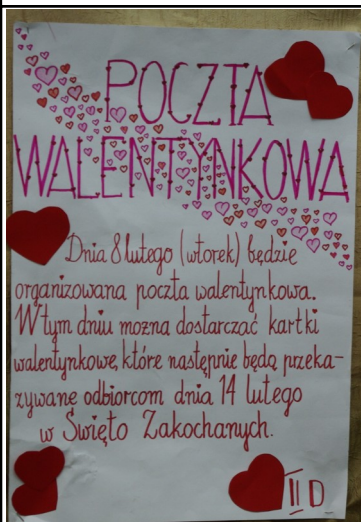 POCZTA
WALENTYNKOWA
Dnia 8 lutego (wtorek) będzie
organizowana poczta walentynkowa.
W tym dniu można dostarczać kartki
walentynkowe, które następnie będą przeka-
zywane odbiorcom dnia 14 lutego
w Święto Zakochanych.
II D